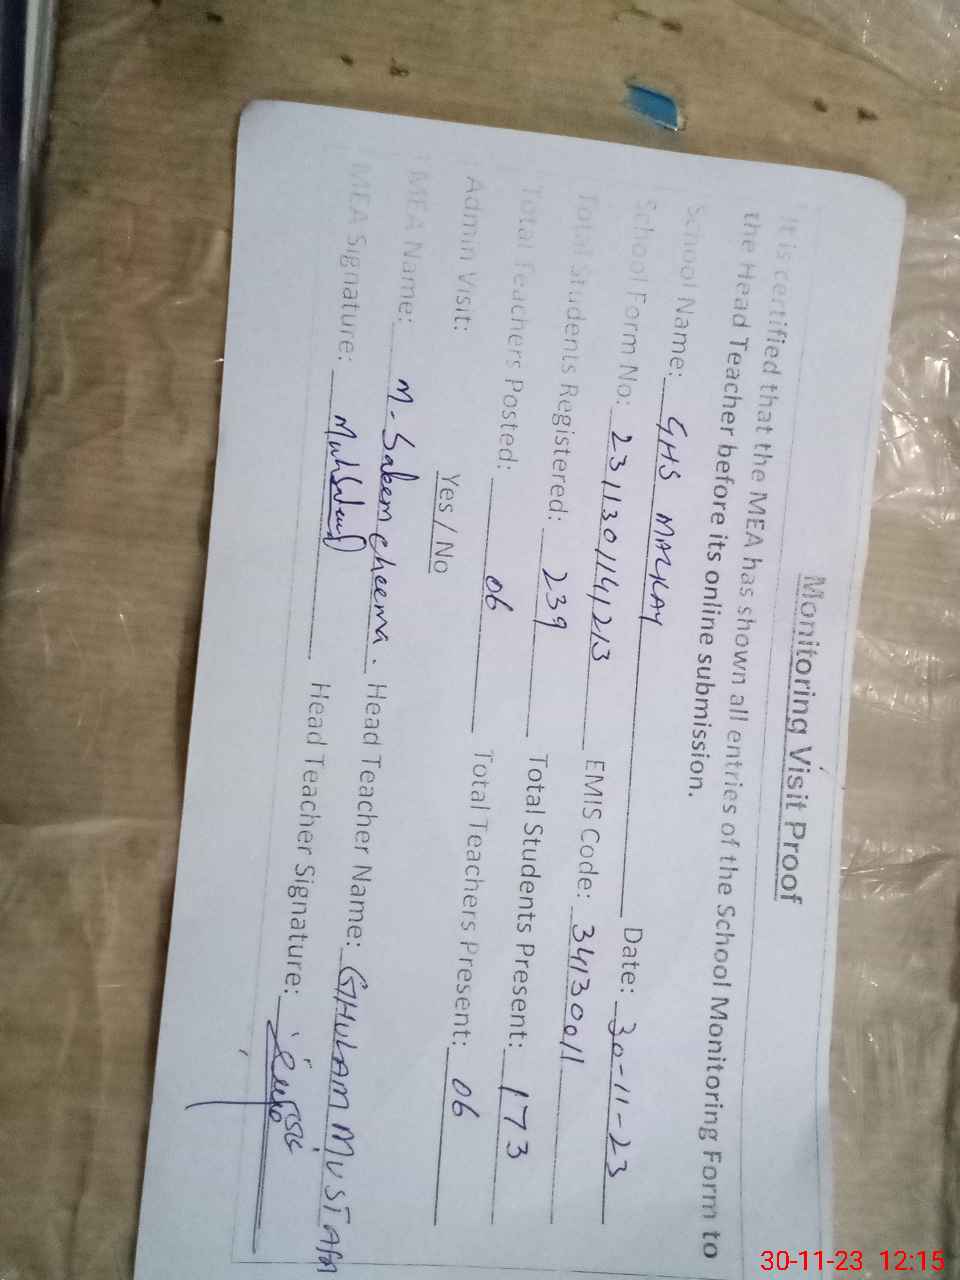 Monitoring Visit Proof
It is certified that the MEA has shown all entries of the School Monitoring Form to
the Head Teacher before its online submission.
School Name: GHS MALKAY Date: 30-11-23
School Form No: 231130114213 EMIS Code: 34130011
Total Students Registered: 239 Total Students Present: 173
Total Teachers Posted: 06 Total Teachers Present: 06
Admin Visit: Yes / No
MEA Name: M. Saleem cheema. Head Teacher Name: GHULAM MUSTAFA
MEA Signature: Head Teacher Signature:
30-11-23 12:15